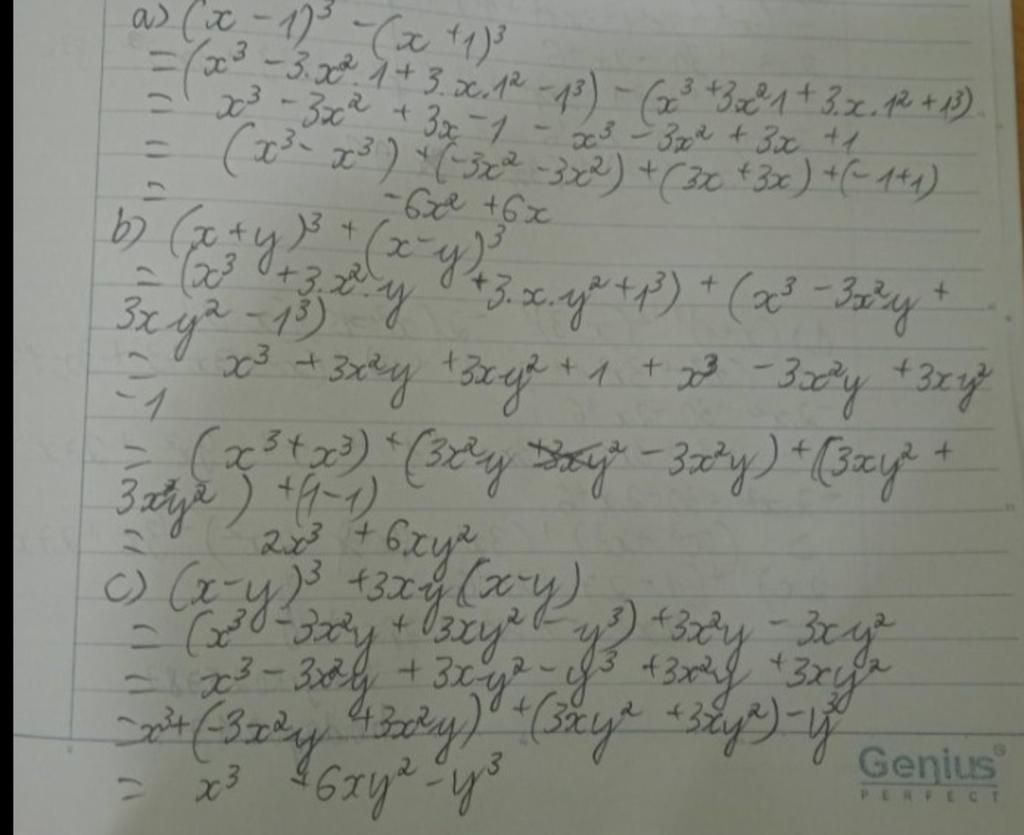 a) (x - 1)³ - (x + 1)³
= (x³ - 3.x².1 + 3.x.1² - 1³) - (x³ + 3x²1 + 3.x.1² + 1³)
= x³ - 3x² + 3x - 1 - x³ - 3x² + 3x + 1
= (x³ - x³) + (-3x² - 3x²) + (3x + 3x) + (-1+1)
= -6x² + 6x
b) (x + y)³ + (x - y)³
= (x³ + 3.x².y + 3.x.y² + 1³) + (x³ - 3x²y +
3xy² - 1³)
= x³ + 3x²y + 3xy² + 1 + x³ - 3x²y + 3xy²
- 1
= (x³ + x³) + (3x²y - 3x²y) + (3xy² +
3xy²) + (1 - 1)
= 2x³ + 6xy²
c) (x - y)³ + 3xy(x - y)
= (x³ - 3x²y + 3xy² - y³) + 3x²y - 3xy²
= x³ - 3x²y + 3xy² - y³ + 3x²y + 3xy²
= x³ + (-3x²y + 3x²y) + (3xy² + 3xy²) - y³
= x³ + 6xy² - y³
Genius®
PERFECT